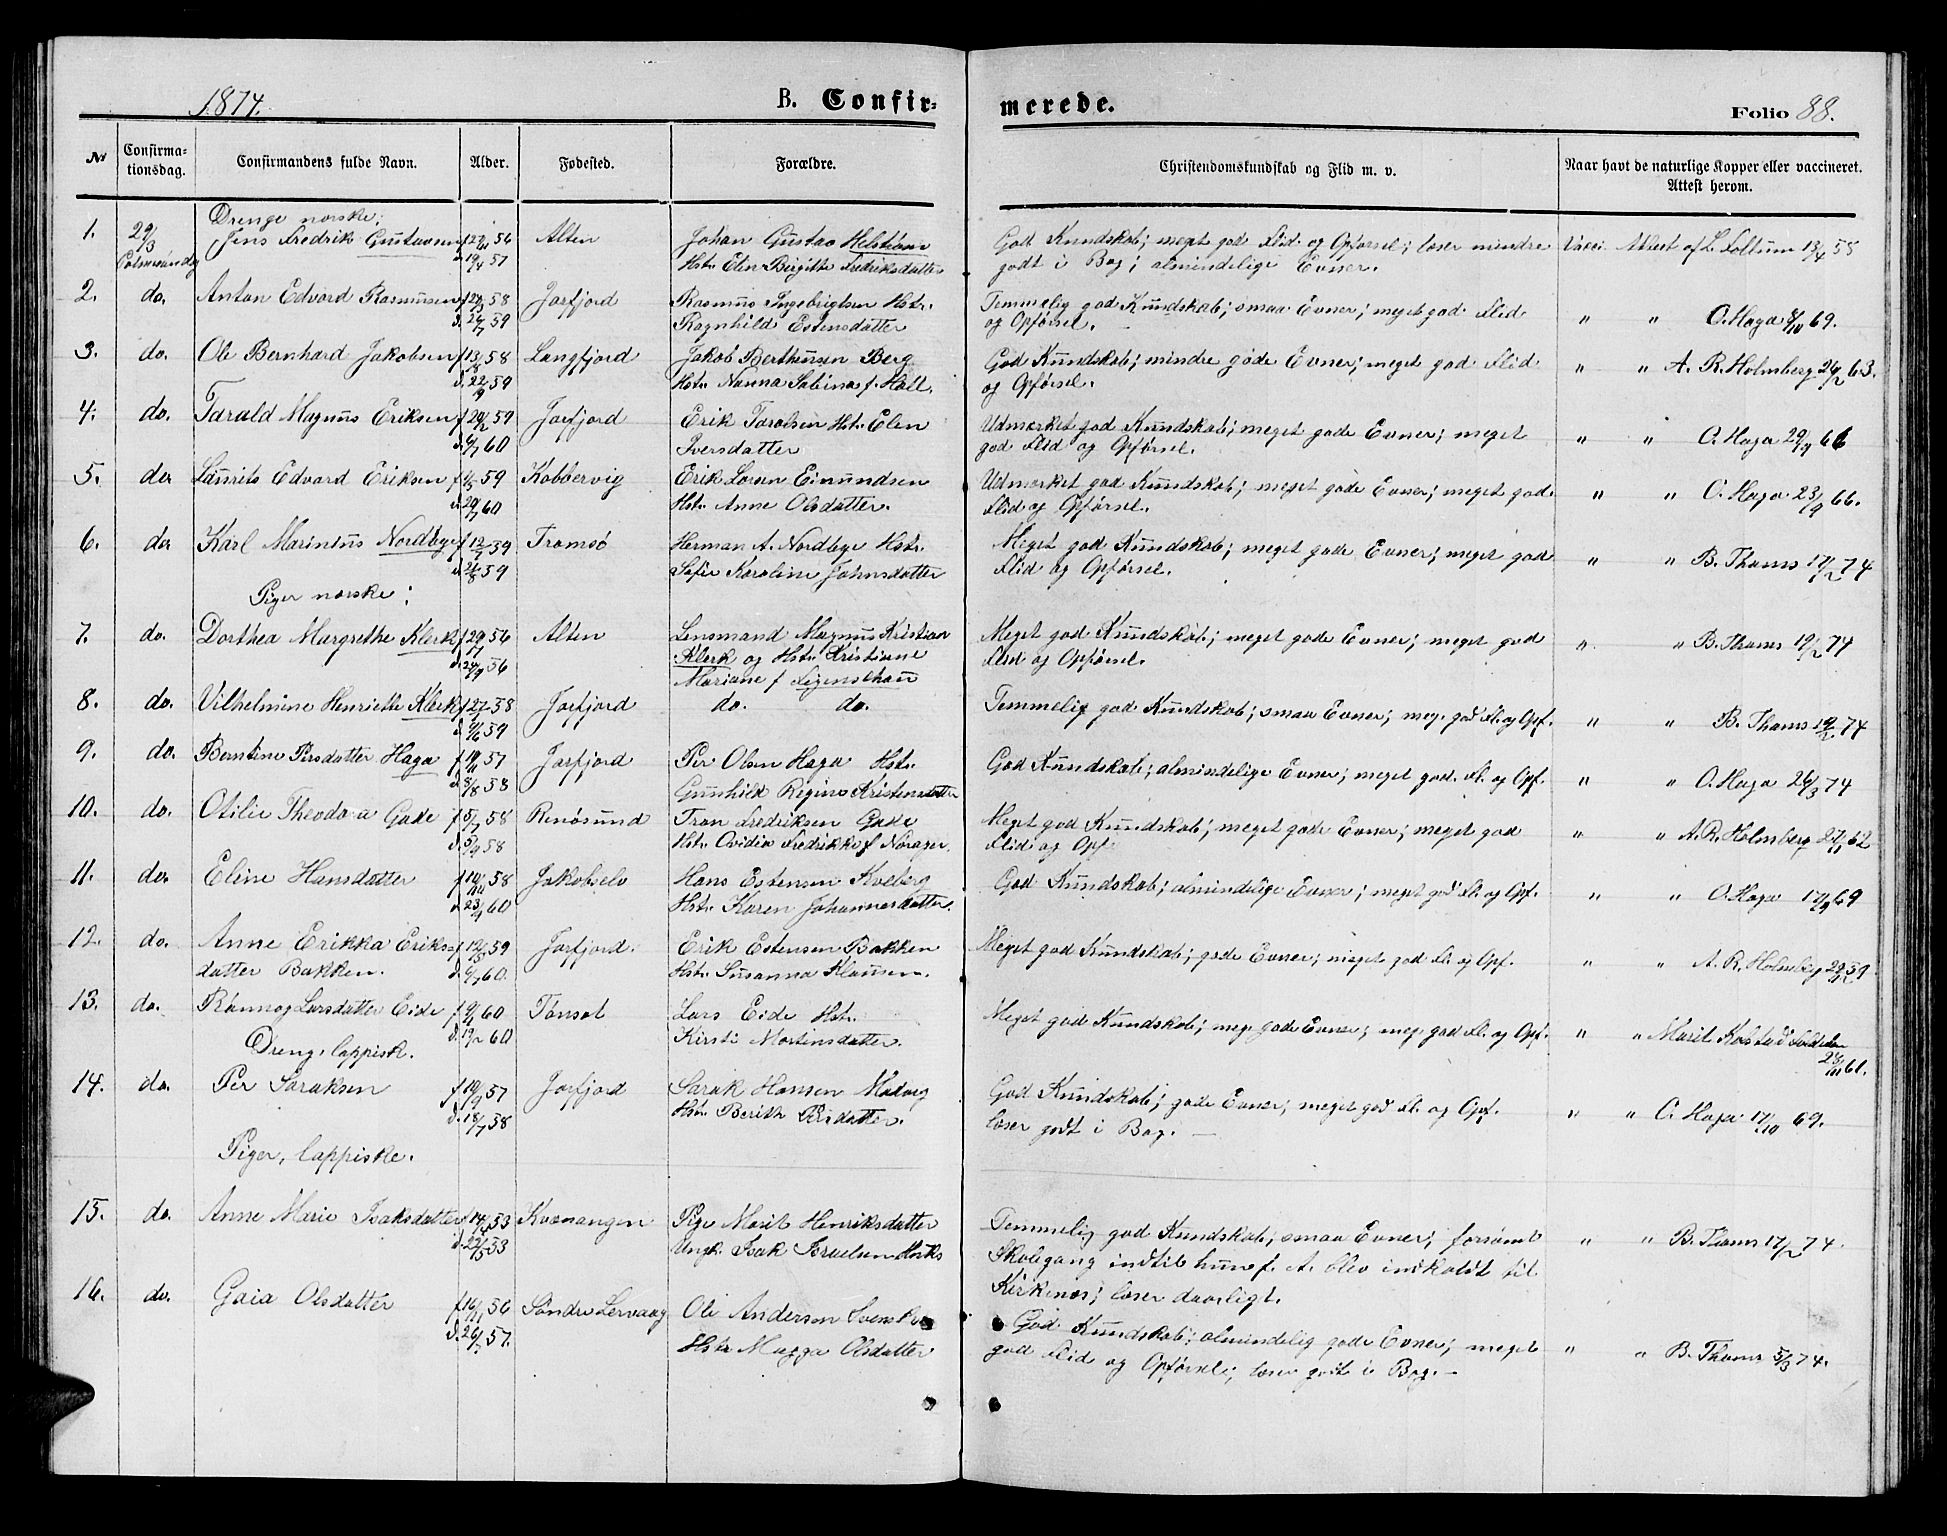 1874.
B. Confir-
merede.
Folio 88.
№
Confirma-
tionsdag.
Confirmandens fulde Navn.
Alder.
Fødested.
Forældre.
Christendomskundskab og Flid m. v.
Naar havt de naturlige Kopper eller vaccineret.
Attest herom.
Drenge norske:
1. 29/3 Jens Fredrik Gustavsen 56 Alten Johan Gustav God Kundskab; meget god Flid og Opførsel; læser mindre Vacci. Attest af L. 13/4 58
Palmesøndag d. 19/4 57 Hstr. Elen Birgitte Fredriksdatter godt i Bog; almindelige Evner.
2. do. Anton Edvard Rasmussen 58 Jarfjord Rasmus Ingebrigtsen Hstr. Temmelig god Kundskab; smaa Evner; meget god Flid " " O. Haga 8/10 69.
d. 59 Ragnhild Estensdatter og Opførsel.
3. do. Ole Bernhard Jakobsen 58 Langfjord Jakob Bertheusen Berg God Kundskab; mindre gode Evner; meget god Flid " " A. R. Holmberg 63.
d. 22/9 59 Hstr. Nanna Sabina f. Hall. og Opførsel.
4. do. Tarald Magnus Eriksen 59 Jarfjord Erik Taralsen Hstr. Elen Udmærket god Kundskab; meget gode Evner; meget " " O. Haga 29/9 66
d. 6/7 60 Iversdatter god Flid og Opførsel.
5. do. Laurits Edvard Eriksen 59 Kobbervig Erik Loren Eimundsen Udmærket god Kundskab; meget gode Evner; meget god " " O. Haga 23/9 66.
60 Hstr. Anne Olsdatter. Flid og Opførsel.
6. do. Karl Marinius Nordbye f. 12/7 59 Tromsø Herman A. Nordbye Hstr. Meget god Kundskab; meget gode Evner; meget god " " B. Thams 17/2 74
59 Sofie Karoline Johnsdatter Flid og Opførsel.
Piger norske:
7. do. Dorthea Margrethe Klerk 56 Alten Lensmand Magnus Kristian Meget god Kundskab; meget gode Evner; meget god " " B. Thams 19/2 74
56 Klerk og Hstr. Kristiane Flid og Opførsel.
Mariane f.
8. do. Vilhelmine Henriette Klerk 58 Jarfjord do. do. Temmelig god Kundskab; smaa Evner; meg. god Fl. og Opf. " " B. Thams 19/2 74
59
9. do. Berntine Persdatter Haga 57 Jarfjord Per Olsen Haga Hstr. God Kundskab; almindelige Evner; meget god Fl. og Opf. " " O. Haga 26/3 74
d. 8/8 58 Gunhild Regine Kristensdatter
10. do. Otilie Theodora Gade f. 5/7 58 Renøsund Tron Fredriksen Gade Meget god Kundskab; meget gode Evner; meget god " " A. R. Holmberg 62
d. 5/9 58 Hstr. Ovidia Fredrikke f. Norager. Flid og Opf.
11. do. Eline Hansdatter 58 Jakobselv Hans Estensen Kolberg God Kundskab; almindelige Evner; meget god Fl. og Opf. " " O. Haga 17/9 69
60 Hstr. Karen Johannesdatter.
12. do. Anne Erikka Eriks- 59 Jarfjord. Erik Estensen Bakken Meget god Kundskab; gode Evner; meget god Fl. og Opf. " " A. R. Holmberg 59
datter Bakken. d. 6/7 60. Hstr. Susanna Klausen.
13. do. Rønnog Larsdatter Eide 60 Tønset Lars Eide Hstr. Meget god Kundskab; meg. gode Evner; meg. god Fl. og Opf. " " Marit Kolstad
d. 19/2 60 Kirsti Mortensdatter. 61.
Dreng, lappisk.
14. do. Per Saraksen f. 19/9 57 Jarfjord Sarak Hansen Madvig God Kundskab; gode Evner; meget god Fl. og Opf. " " O. Haga 17/10 69.
d. 18/7 58 Hstr. Berith Persdatter. læser godt i Bog. —
Piger, lappiske.
15. do. Anne Marie Isaksdatter 53 Kvænangen Pige Marit Henriksdatter Temmelig god Kundskab; smaa Evner; forsømt " " B. Thams 17/2 74.
53 Ungk. Isak Israelsen Skolegang indtil hun f. A. blev indkaldt til
Kirkenæs; læser daarligt.
16. do. Gaia Olsdatter 56 Søndre Lervaag Ole Andersen God Kundskab; almindelig gode Evner; meget " " B. Thams 5/3 74.
57. Hstr. Magga Olsdatter god Flid og Opførsel; læser godt i Bog. —